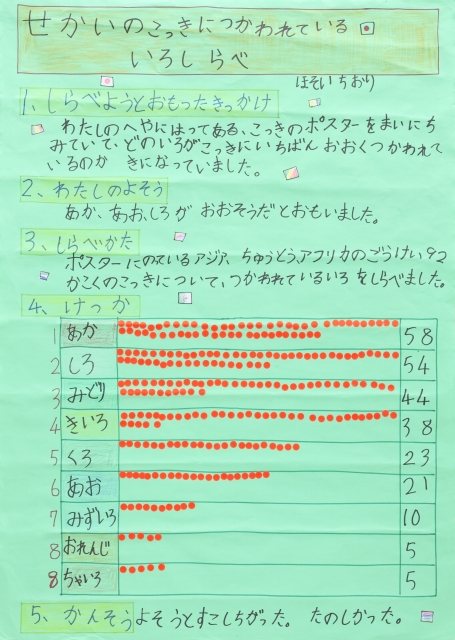 せかいのこっきにつかわれている
いろしらべ
ほそいちおり
1、しらべようとおもったきっかけ
わたしのへやにはってある、こっきのポスターをまいにち
みていて、どのいろがこっきにいちばんおおくつかわれて
いるのか きになっていました。
2、わたしのよそう
あか、あお、しろが おおそうだとおもいました。
3、しらべかた
ポスターにのているアジア、ちゅうとう、アフリカのごうけい、92
かこくのこっきについて、つかわれているいろをしらべました。
4、けっか
1 あか 58
2 しろ 54
3 みどり 44
4 きいろ 38
5 くろ 23
6 あお 21
7 みずいろ 10
8 おれんじ 5
8 ちゃいろ 5
5、かんそう よそうとすこしちがった。 たのしかった。